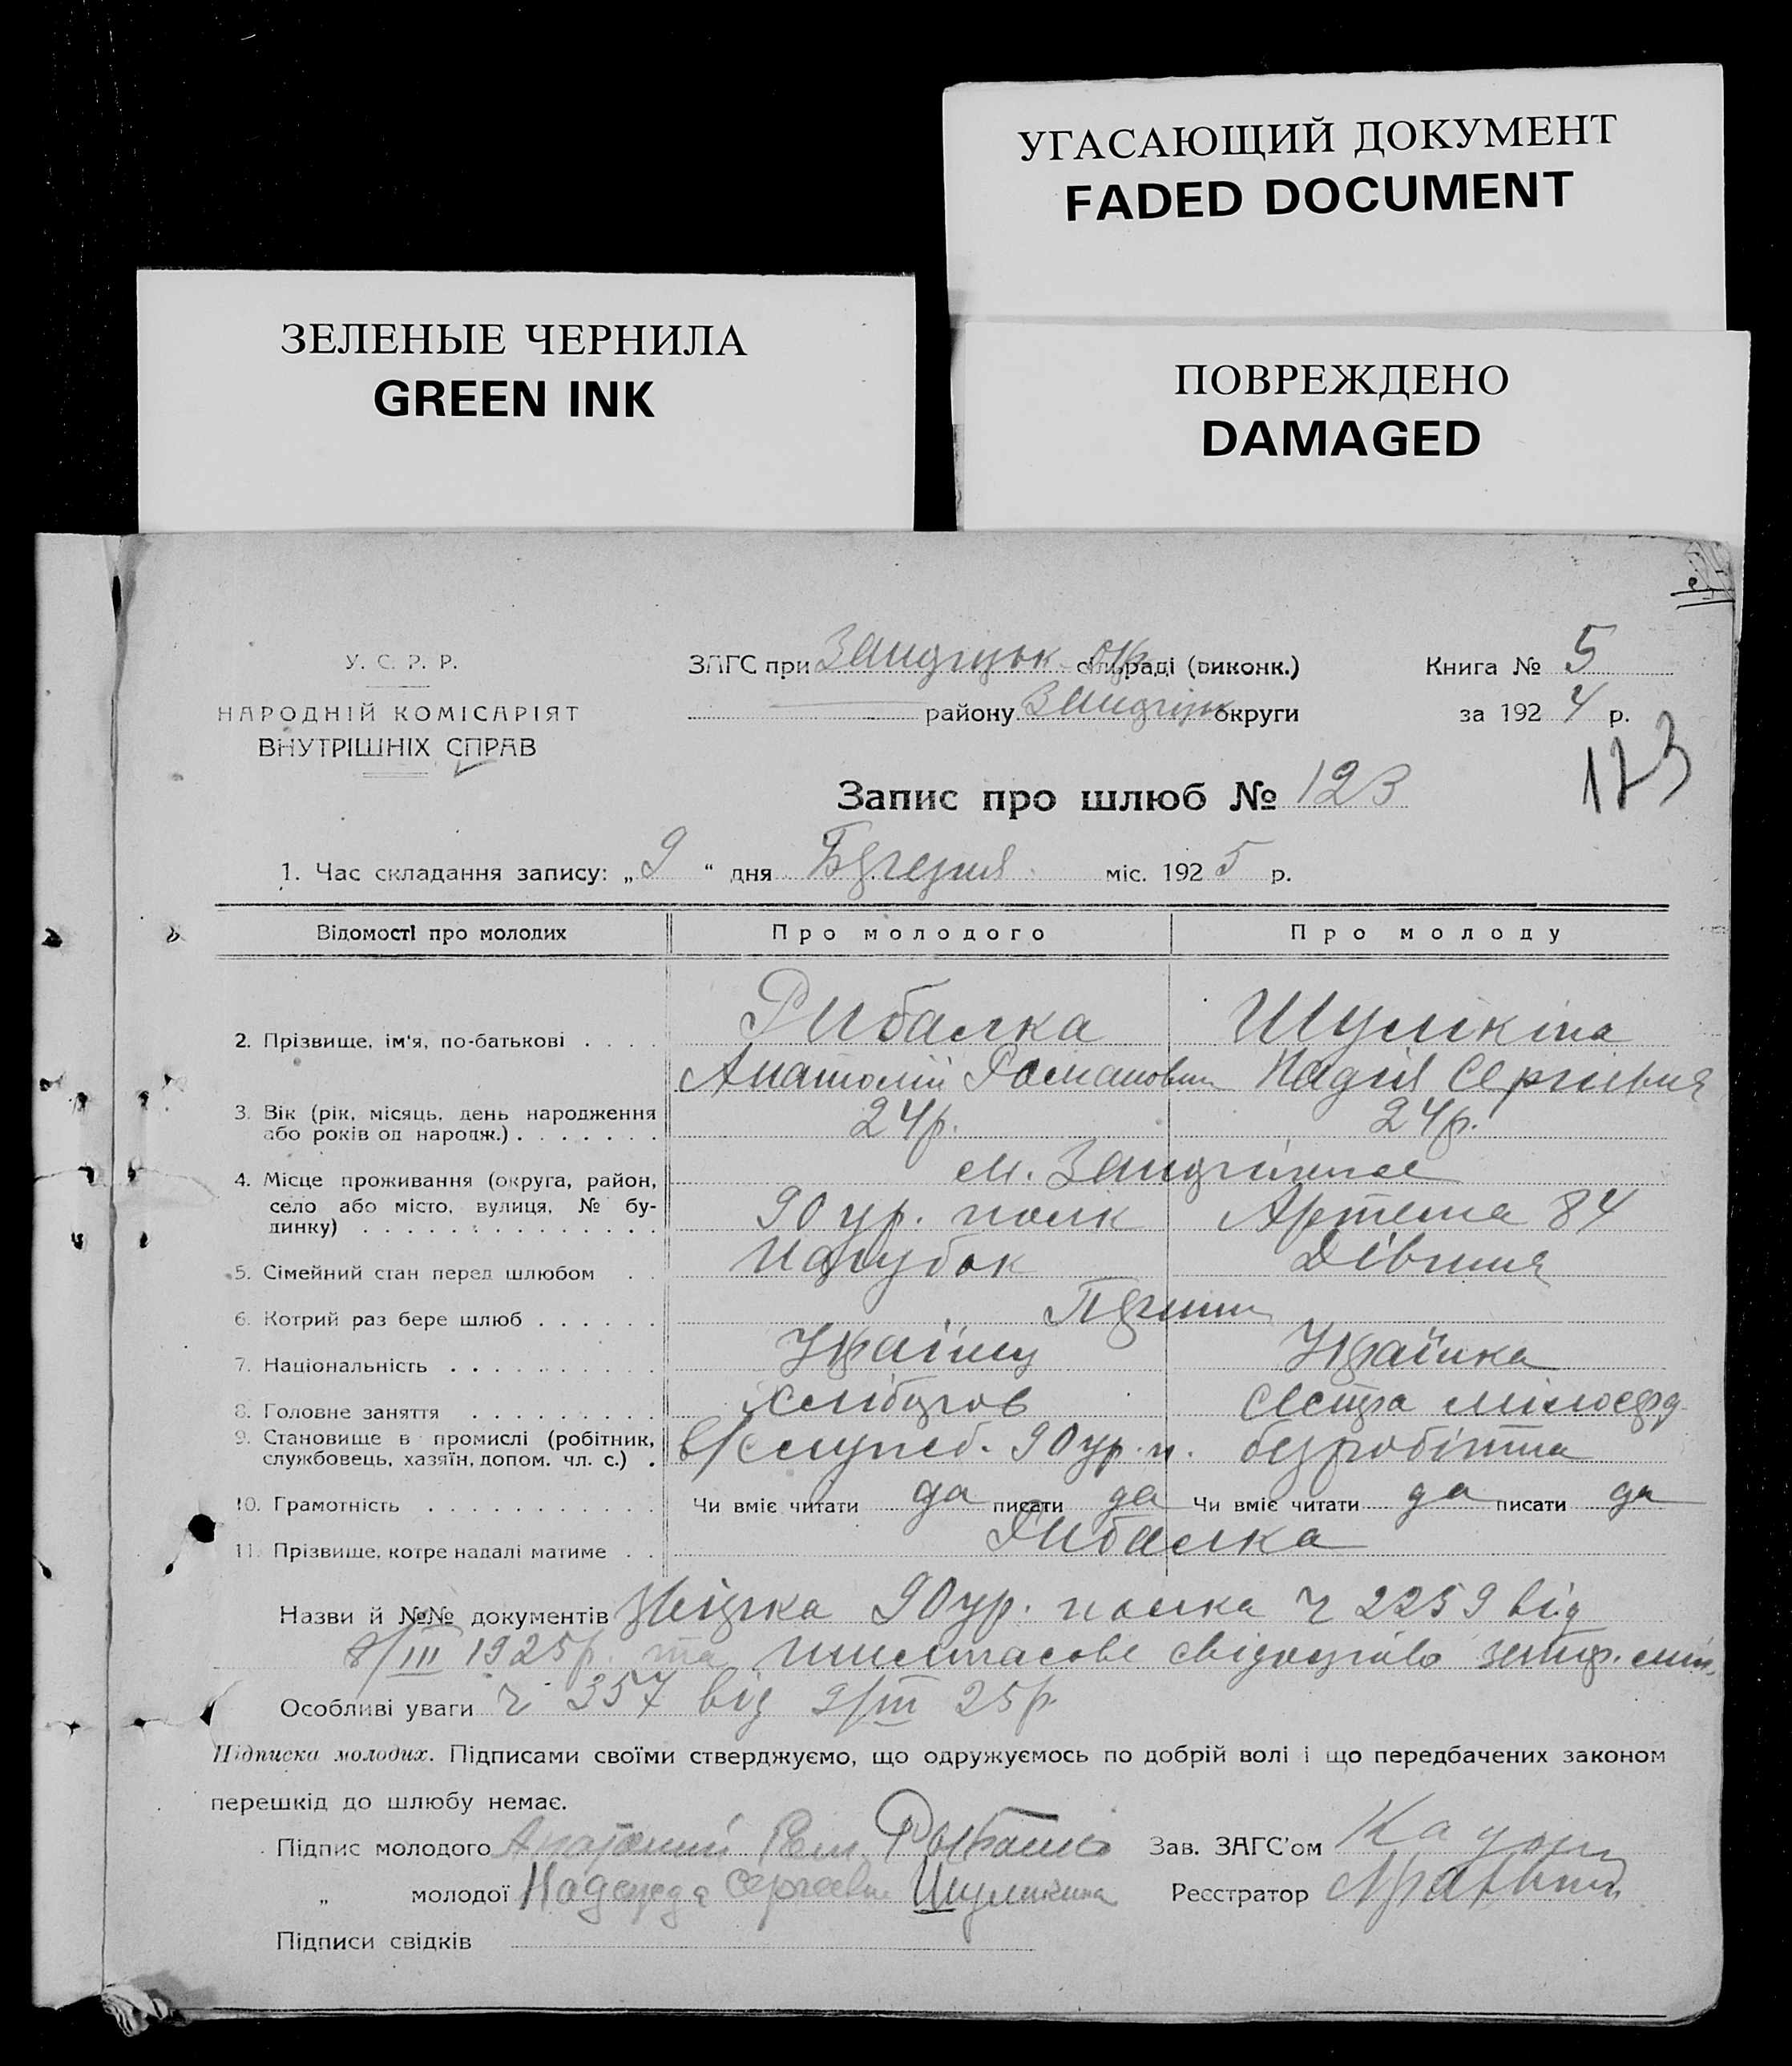 УГАСАЮЩИЙ ДОКУМЕНТ
FADED DOCUMENT
ЗЕЛЕНЫЕ ЧЕРНИЛА
GREEN INK
ПОВРЕЖДЕНО
DAMAGED
У. С. Р. Р.
НАРОДНІЙ КОМІСАРІЯТ
ВНУТРІШНІХ СПРАВ
ЗАГС при окр. сільраді (виконк.)
району округи
Книга № 5
за 1924 р.
123
Запис про шлюб № 123
1. Час складання запису: „9“ дня Березня міс. 1925 р.
Відомості про молодих Про молодого Про молоду
2. Прізвище, ім'я, по-батькові . . . . Рибалка Шулікіна
Анатолій Романович Надія Сергіївна
3. Вік (рік, місяць, день народження
або років од народж.) . . . . . . . 24р. 24р.
4. Місце проживання (округа, район,
село або місто, вулиця, № бу-
динку) . . . . . . . . . . . . . .
м.
90 ур. полк Артема 84
5. Сімейний стан перед шлюбом . . Парубок Дівчина
6. Котрий раз бере шлюб . . . . . . Перший
7. Національність . . . . . . . . . Українець Українка
8. Головне заняття . . . . . . . . . Хлібороб Сестра милосерд.
9. Становище в промислі (робітник,
службовець, хазяїн, допом. чл. с.) . в/служб. 90 ур. п. безробітна
10. Грамотність . . . . . . . . . . . Чи вміє читати да писати да Чи вміє читати да писати да
11. Прізвище, котре надалі матиме . . Рибалка
Назви й №№ документів 90 ур. полка ч 2259 від
8/III 1925р. та
Особливі уваги ч 357 від 9/III 25р.
Підписка молодих. Підписами своїми стверджуємо, що одружуємось по добрій волі і що передбачених законом
перешкід до шлюбу немає.
Підпис молодого Анатолий Ром. Рыбалко Зав. ЗАГС'ом
„ молодої Надежда Сергеевна Шуликина Реєстратор
Підписи свідків